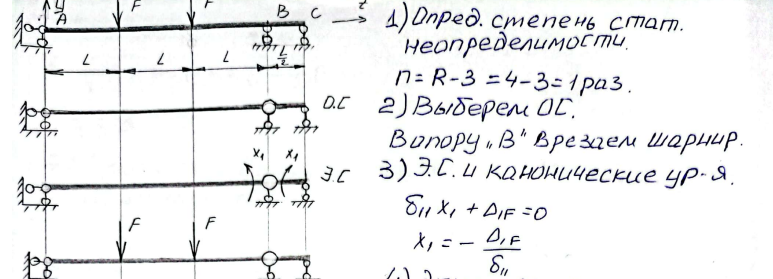 y F F B C z
A
L L L L/2
1) Опред. степень стат.
неопределимости.
n = R-3 = 4-3 = 1 раз.
О.С
2) Выберем ОС.
В опору „В" врезаем шарнир.
x₁ x₁
Э.С
3) Э.С. и канонические ур-я.
δ₁₁ x₁ + Δ₁F = 0
x₁ = - Δ₁F / δ₁₁
F F